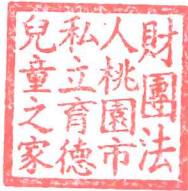 財團法
人桃園市
私立育德
兒童之家